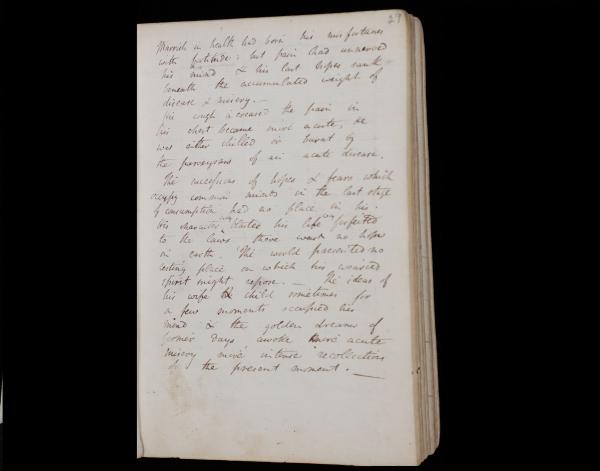 29
Marrich in health had born his misfortunes
with fortitude; but pain had unnerved
his mind & his last hopes sank
beneath the accumulated weight of
disease & misery. —
his cough encreased the pain in
his chest became more acute, he
was either chilled or burnt by
the paroxysms of an acute disease.
The successions of hopes & fears which
occupy common minds in the last stage
of consumption had no place in his.
His character his life forfeited
to the laws there was no hope
on earth. The world presented no
resting place on which his wearied
spirit might repose. — The ideas of
his wife & child sometimes for
a few moments occupied his
mind & the golden dreams of
former days awoke more acute
misery more intense recollections
of the present moment. —